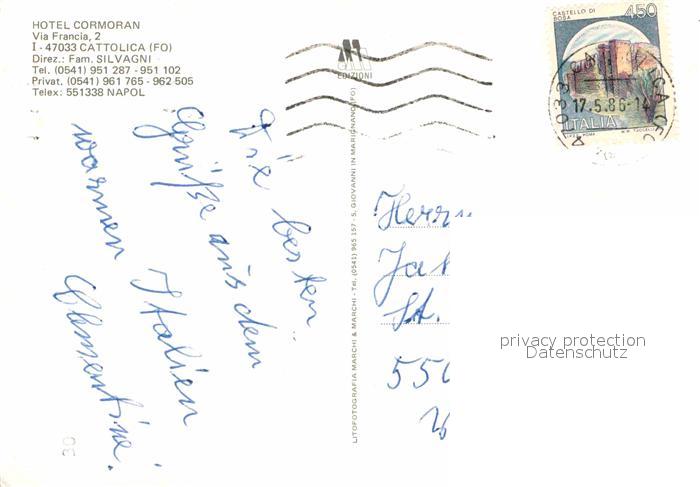 HOTEL CORMORAN
Via Francia, 2
I - 47033 CATTOLICA (FO)
Direz.: Fam. SILVAGNI
Tel. (0541) 951 287 - 951 102
Privat. (0541) 961 765 - 962 505
Telex: 551338 NAPOL
EDIZIONI
CASTELLO DI
BOSA
450
17.5.86-14
ITALIA
Die besten
Grüße aus dem
warmen Italien
Clementine.
LITOFOTOGRAFIA MARCHI & MARCHI - Tel. (0541) 965 157 - S. GIOVANNI IN MARIGNANO (FO)
Herrn
St.
550
privacy protection
Datenschutz
30